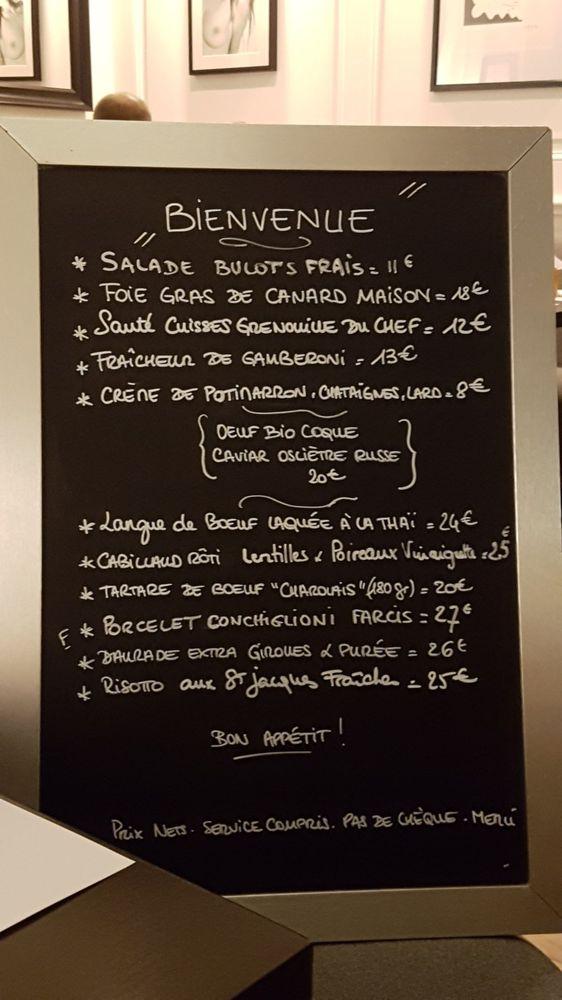 BIENVENUE
* SALADE BULOTS FRAIS = 11€
* FOIE GRAS DE CANARD MAISON = 18€
* Sauté CUISSES GRENOUILLE DU CHEF = 12€
* FRAÎCHEUR DE GAMBERONI = 13€
* CRÈME DE POTIMARRON, CHATAIGNES, LARD = 8€
OEUF BIO COQUE
CAVIAR OSCIÈTRE RUSSE
20€
* Langue de BOEUF LAQUÉE À LA THAÏ = 24€
* CABILLAUD RÔTI Lentilles & Poireaux Vinaigrette = 25€
* TARTARE DE BOEUF "CHAROLAIS" (180gr) = 20€
* PORCELET CONCHIGLIONI FARCIS = 27€
* DAURADE EXTRA GIROLLES & PURÉE = 26€
* RISOTTO aux St Jacques Fraîches = 25€
BON APPÉTIT !
PRIX NETS. SERVICE COMPRIS. PAS DE CHÈQUE. MERCI